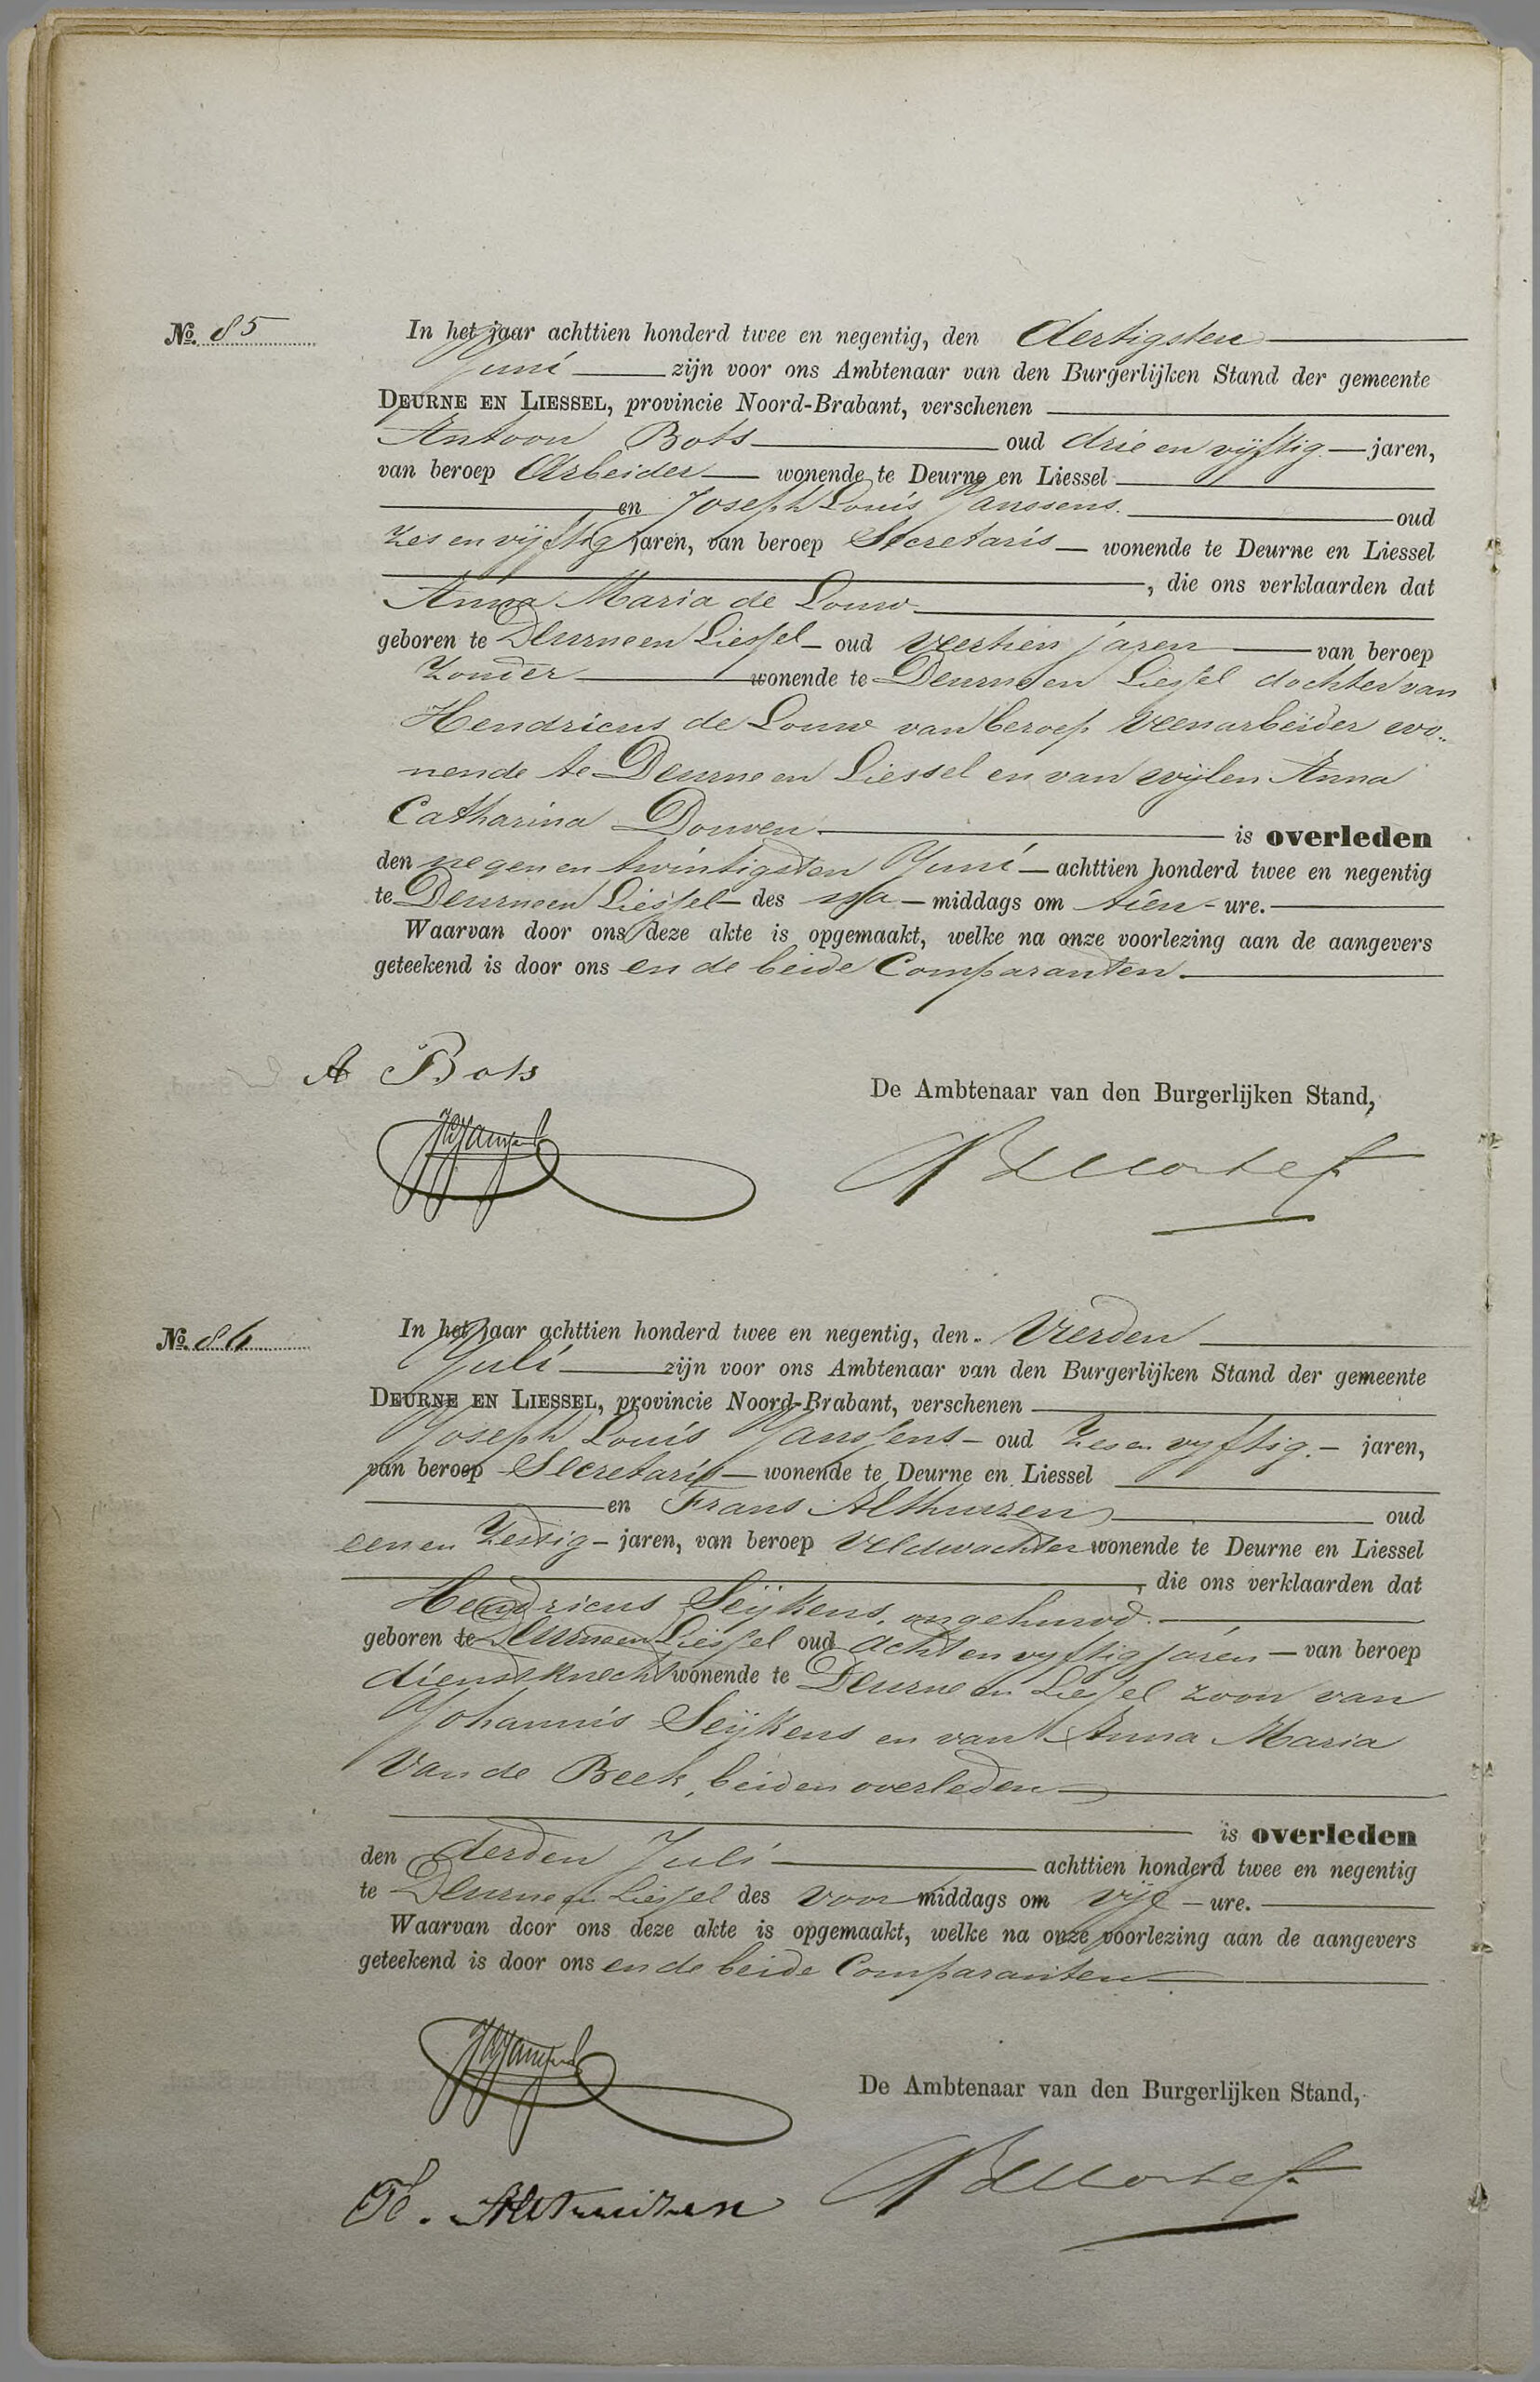 No. 85
In het jaar achttien honderd twee en negentig, den dertigsten
Juni zijn voor ons Ambtenaar van den Burgerlijken Stand der gemeente
DEURNE EN LIESSEL, provincie Noord-Brabant, verschenen
Antoon Bots oud drie en vijftig jaren,
van beroep Arbeider wonende te Deurne en Liessel
en Joseph Louis Janssens. oud
zes en vijftig jaren, van beroep Secretaris wonende te Deurne en Liessel
, die ons verklaarden dat
Anna Maria de Louw
geboren te Deurne en Liessel oud veertien jaren van beroep
zonder wonende te Deurne en Liessel dochter van
Hendricus de Louw van beroep veenarbeider wo-
nende te Deurne en Liessel en van wijlen Anna
Catharina Douven is overleden
den negen en twintigsten Juni achttien honderd twee en negentig
te Deurne en Liessel des na middags om tien ure.
Waarvan door ons deze akte is opgemaakt, welke na onze voorlezing aan de aangevers
geteekend is door ons en de beide Comparanten.
A Bots
De Ambtenaar van den Burgerlijken Stand,
No. 86
In het jaar achttien honderd twee en negentig, den Vierden
Juli zijn voor ons Ambtenaar van den Burgerlijken Stand der gemeente
DEURNE EN LIESSEL, provincie Noord-Brabant, verschenen
Joseph Louis Janssens oud zes en vyftig. jaren,
van beroep Secretaris wonende te Deurne en Liessel
en Frans Althuizen oud
een en zestig jaren, van beroep Veldwachter wonende te Deurne en Liessel
, die ons verklaarden dat
Hendricus Seijkens, ongehuwd.
geboren te Deurne en Liessel oud acht en vyftig jaren van beroep
dienstknecht wonende te Deurne en Liessel zoon van
Johannis Seijkens en van Anna Maria
Van de Beek, beiden overleden
is overleden
den derden Juli achttien honderd twee en negentig
te Deurne en Liessel des voor middags om vijf ure.
Waarvan door ons deze akte is opgemaakt, welke na onze voorlezing aan de aangevers
geteekend is door ons en de beide Comparanten
De Ambtenaar van den Burgerlijken Stand,
Althuizen